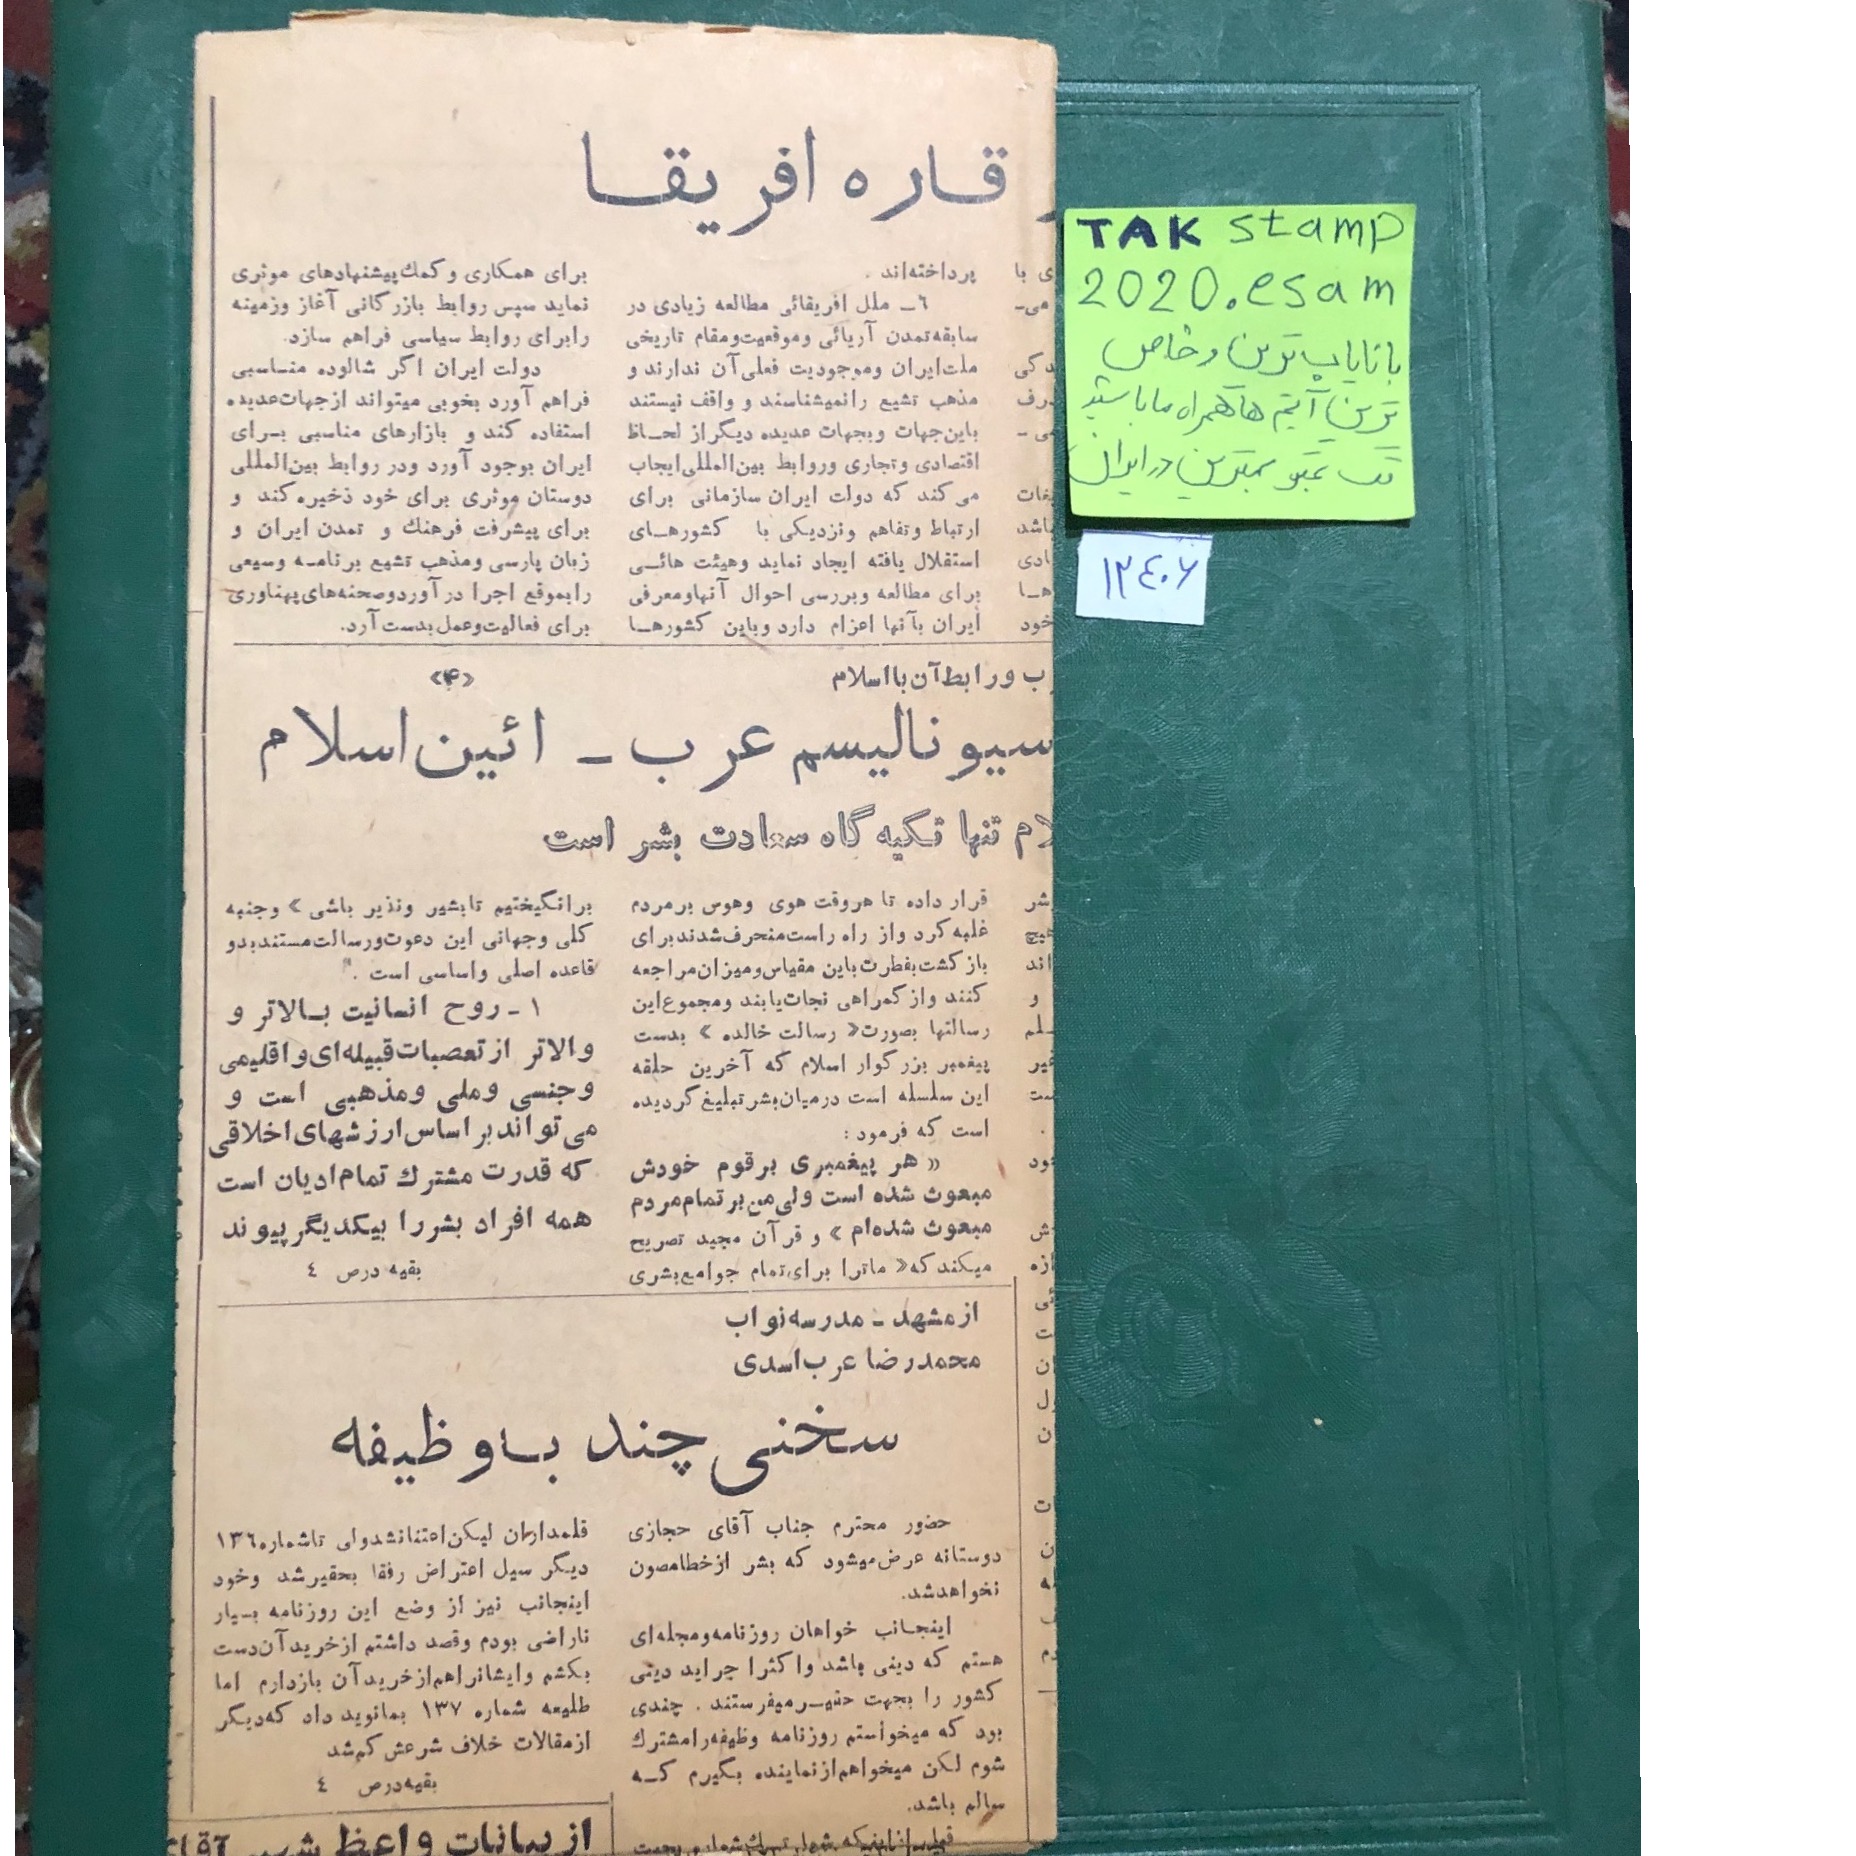 قاره افریقا
پرداخته‌اند .
٦ـ ملل افریقائی مطالعه زیادی در
سابقه تمدن آریائی وموقعیت‌ومقام تاریخی
ملت‌ایران وموجودیت فعلی‌آن ندارند و
مذهب تشیع رانمیشناسند و واقف نیستند
باین‌جهات وبجهات عدیده دیگراز لحاظ
اقتصادی وتجاری وروابط بین‌المللی‌ایجاب
می‌کند که دولت ایران سازمانی برای
ارتباط وتفاهم ونزدیکی با کشورهای
استقلال یافته ایجاد نماید وهیئت هائی
برای مطالعه وبررسی احوال آنهاومعرفی
ایران بآنها اعزام دارد وباین کشورها
برای همکاری وکمك‌پیشنهادهای موثری
نماید سپس روابط بازرگانی آغاز وزمینه
رابرای روابط سیاسی فراهم سازد.
دولت ایران اگر شالوده مناسبی
فراهم آورد بخوبی میتواند ازجهات‌عدیده
استفاده کند و بازارهای مناسبی برای
ایران بوجود آورد ودر روابط بین‌المللی
دوستان موثری برای خود ذخیره کند و
برای پیشرفت فرهنك و تمدن ایران و
زبان پارسی ومذهب تشیع برنامه وسیعی
رابموقع اجرا درآوردوصحنه‌های‌پهناوری
برای فعالیت‌وعمل‌بدست آرد.
ب ورابطه‌آن‌بااسلام
«۴»
سیونالیسم عرب ـ ائین اسلام
لام تنها تکیه گاه سعادت بشر است
قرار داده تا هروقت هوی وهوس برمردم
غلبه کرد واز راه راست‌منحرف‌شدندبرای
بازگشت‌بفطرت‌باین مقیاس‌ومیزان‌مراجعه
کنند وازگمراهی نجات‌یابند ومجموع‌این
رسالتها بصورت« رسالت خالده » بدست
پیغمبر بزرگوار اسلام که آخرین حلقه
این سلسله است درمیان‌بشرتبلیغ‌گردیده
است که فرمود :
« هر پیغمبری برقوم خودش
مبعوث شده است ولی‌من‌برتمام‌مردم
مبعوث شده‌ام » و قرآن مجید تصریح
میکند که« ماترا برای‌تمام جوامع‌بشری
برانگیختیم تابشیر ونذیر باشی » وجنبه
کلی وجهانی این دعوت‌ورسالت‌مستندبدو
قاعده اصلی واساسی است .
١ ـ روح انسانیت بالاتر و
والاتر ازتعصبات‌قبیله‌ای‌واقلیمی
وجنسی وملی ومذهبی است و
می‌تواندبراساس‌ارزشهای‌اخلاقی
که قدرت مشترك تمام‌ادیان است
همه افراد بشررا بیکدیگرپیوند
بقیه درص ٤
ازمشهد ـ مدرسه‌نواب
محمدرضا عرب‌اسدی
سخنی چند با وظیفه
حضور محترم جناب آقای حجازی
دوستانه عرض‌میشود که بشر ازخطامصون
نخواهدشد.
اینجانب خواهان روزنامه‌ومجله‌ای
هستم که دینی باشد واکثرا جراید دینی
کشور را بجهت حقیر میفرستند . چندی
بود که میخواستم روزنامه وظیفه‌رامشترك
شوم لکن میخواهم‌ازنماینده بگیرم که
سالم باشد.
قلمداران لیکن‌اعتنانشدولی تاشماره١٣٦
دیگر سیل اعتراض رفقا بحقیرشد وخود
اینجانب نیز از وضع این روزنامه بسیار
ناراضی بودم وقصد داشتم ازخریدآن‌دست
بکشم وایشانراهم‌ازخریدآن بازدارم اما
طلیعه شماره ١٣٧ بمانوید داد که‌دیگر
ازمقالات خلاف شرعش‌کم‌شد
بقیه‌درص ٤
از بیانات واعظ شهیر آقای
TAK stamp
2020.esam
با نایاب ترین و خاص
ترین آیتم ها همراه ما باشید
تک تمبر بهترین در ایران
۱۲۴۰۶